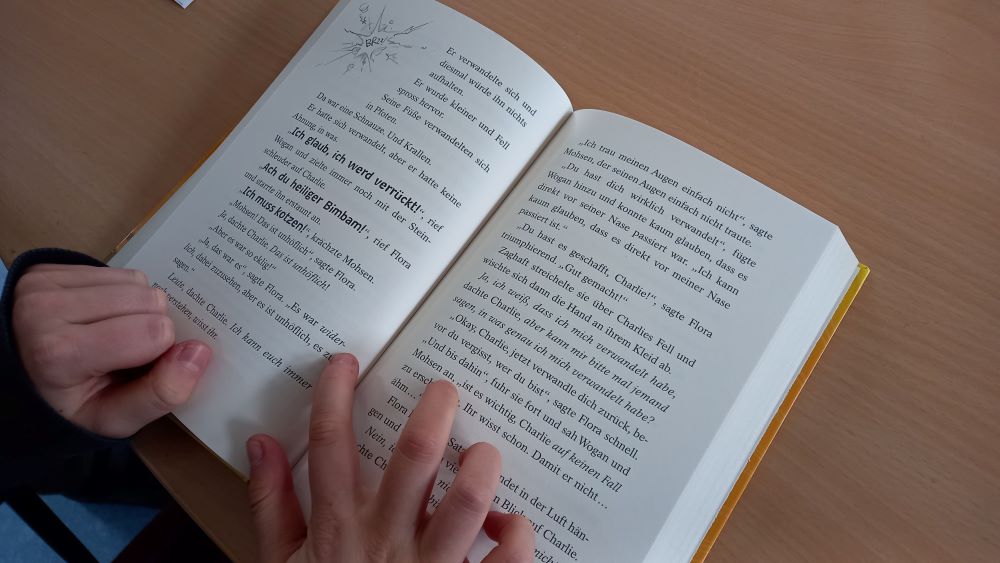 Er verwandelte sich und
diesmal würde ihn nichts
aufhalten.
Er wurde kleiner und Fell
spross hervor.
Seine Füße verwandelten sich
in Pfoten.
Da war eine Schnauze. Und Krallen.
Er hatte sich verwandelt, aber er hatte keine
Ahnung, in was.
„Ich glaub, ich werd verrückt!“, rief
Wogan und zielte immer noch mit der Stein-
schleuder auf Charlie.
„Ach du heiliger Bimbam!“, rief Flora
und starrte ihn erstaunt an.
„Ich muss kotzen!“, krächzte Mohsen.
„Mohsen! Das ist unhöflich“, sagte Flora.
Ja, dachte Charlie. Das ist unhöflich!
„Aber es war so eklig!“
„Ja, das war es“, sagte Flora. „Es war wider-
lich, dabei zuzusehen, aber es ist unhöflich, es zu
sagen.“
Leute, dachte Charlie. Ich kann euch immer
noch verstehen, wisst ihr.
„Ich trau meinen Augen einfach nicht“, sagte
Mohsen, der seinen Augen einfach nicht traute.
„Du hast dich wirklich verwandelt“, fügte
Wogan hinzu und konnte kaum glauben, dass es
direkt vor seiner Nase passiert war. „Ich kann
kaum glauben, dass es direkt vor meiner Nase
passiert ist.“
„Du hast es geschafft, Charlie!“, sagte Flora
triumphierend. „Gut gemacht!“
Zaghaft streichelte sie über Charlies Fell und
wischte sich dann die Hand an ihrem Kleid ab.
Ja, ich weiß, dass ich mich verwandelt habe,
dachte Charlie, aber kann mir bitte mal jemand
sagen, in was genau ich mich verwandelt habe?
„Okay, Charlie, jetzt verwandle dich zurück, be-
vor du vergisst, wer du bist“, sagte Flora schnell.
„Und bis dahin“, fuhr sie fort und sah Wogan und
Mohsen an, „ist es wichtig, Charlie auf keinen Fall
zu Ihr wisst schon. Damit er nicht…
ähm…
Flora Satz endet in der Luft hän-
gen und Blick auf Charlie.
Nein,